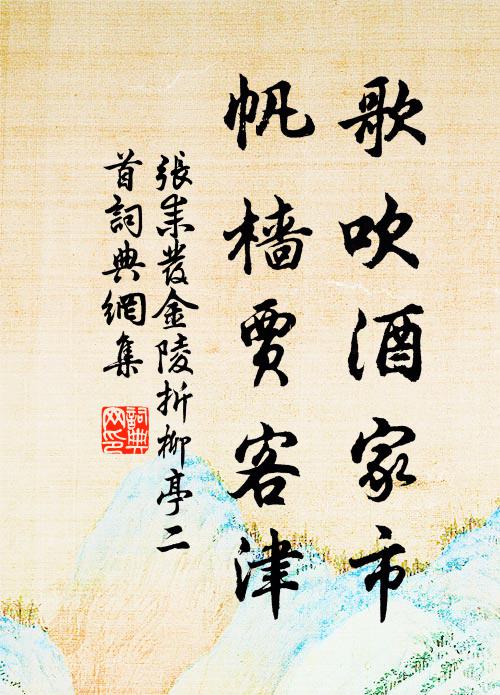 歌吹酒家市
帆檣賈客津
張耒發金陵折柳亭二
首詞典網集
詞典
網印